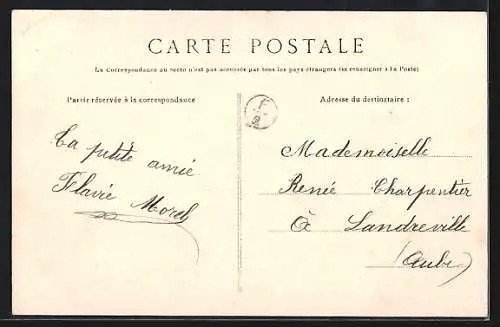 CARTE POSTALE
La Correspondance au recto n'est pas acceptée par tous les pays étrangers (se renseigner à la Poste)
Partie réservée à la correspondance
Adresse du destinataire :
Ta petite amie
Flavie Morel
Mademoiselle
Renée Charpentier
à Landreville
(Aube)